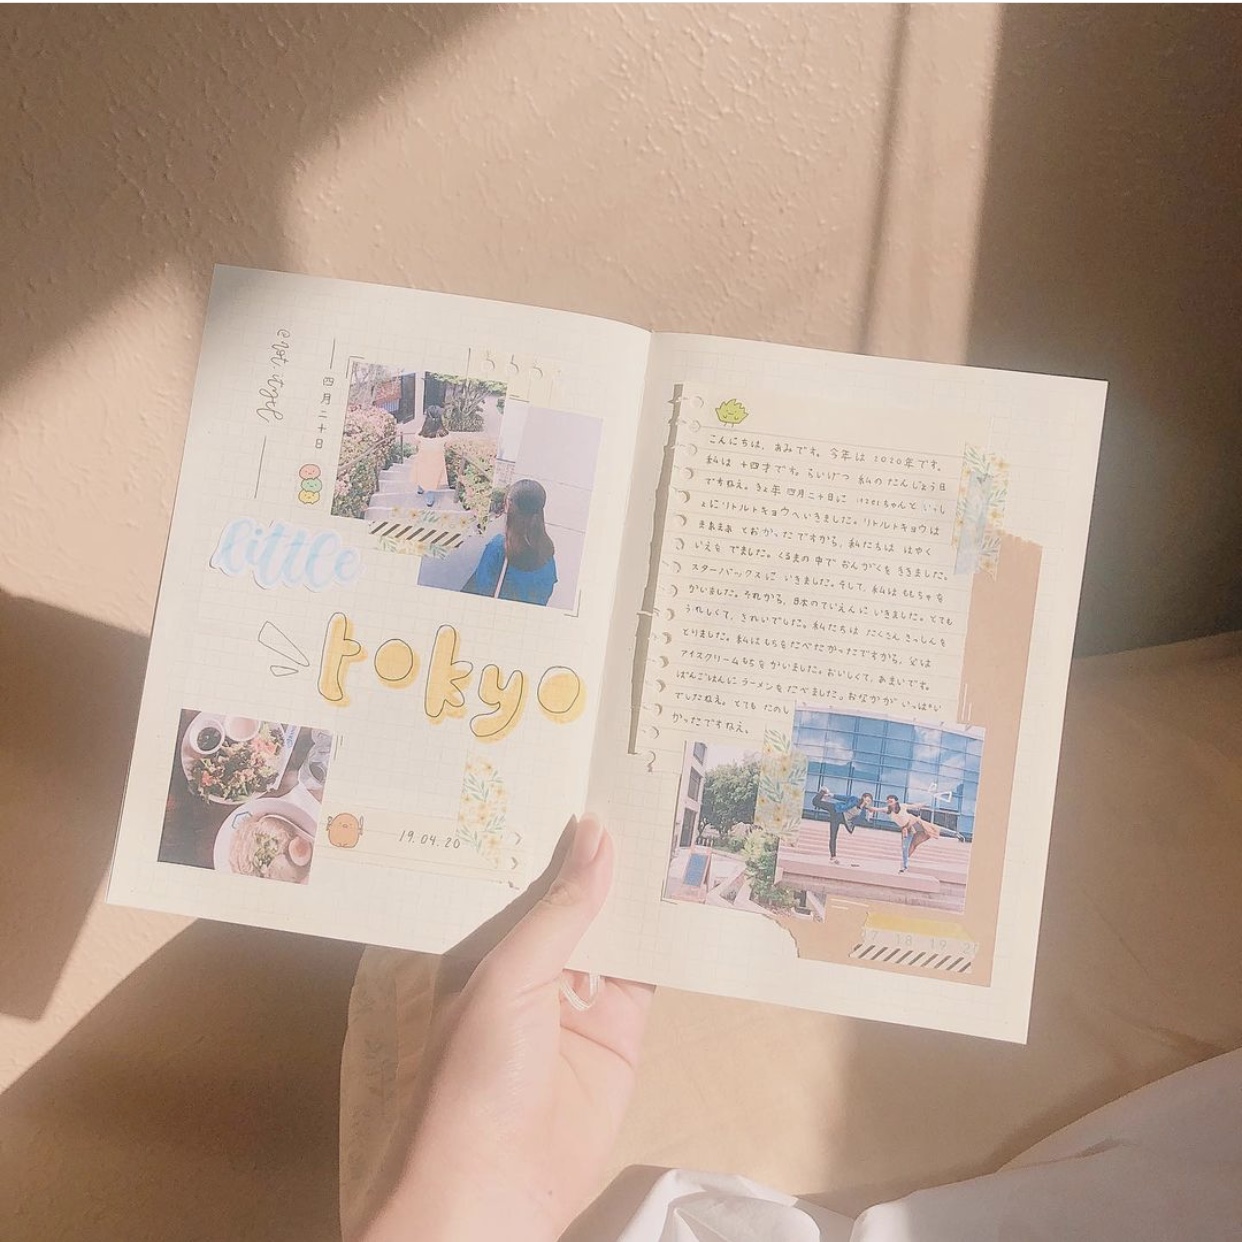 四月二十日
little
tokyo
19.04.20
こんにちは、あみです。今年は2020年です。
私は十四才です。らいげつ私のたんじょう日
ですねえ。きょ年四月二十日に ちゃんといっし
ょにリトルトキョウへいきました。リトルトキョウは
まあまあとおかったですから、私たちははやく
いえをでました。くるまの中でおんがくをききました。
スターバックスにいきました。そして、私はもちゃを
かいました。それから、日本のていえんにいきました。とても
うれしくて、きれいでした。私たちはたくさんざっしんを
とりました。私はもちをたべたかったですから、父は
アイスクリームもちをかいました。おいしくて、あまいです。
ばんごはんにラーメンをたべました。おなかがいっぱい
でしたねえ。とてもたのし
かったですねえ。
17 18 19